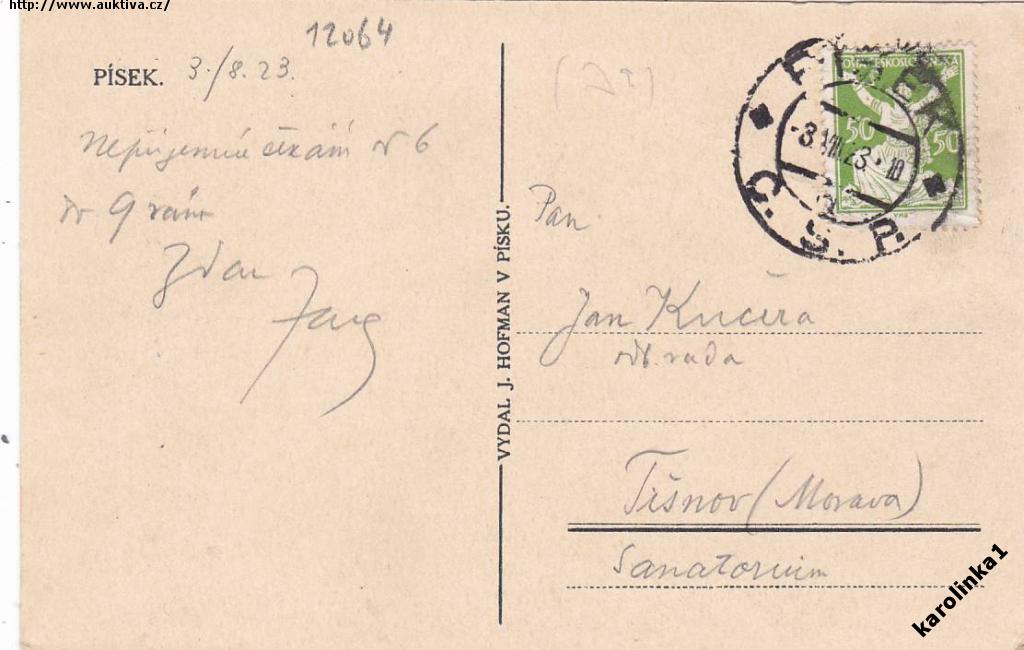 http://www.auktiva.cz/
12064
PÍSEK. 3./8.23.
Nepříjemné čekání od 6
do 9 ráno
Zdar
VYDAL J. HOFMAN V PÍSKU.
POŠTA ČESKOSLOVENSKÁ
50 50
PÍSEK
-3.VIII.23.10
Č.S.P.
Pan
Jan Kučera
odb. rada
Tišnov (Morava)
Sanatorium
karolinka1